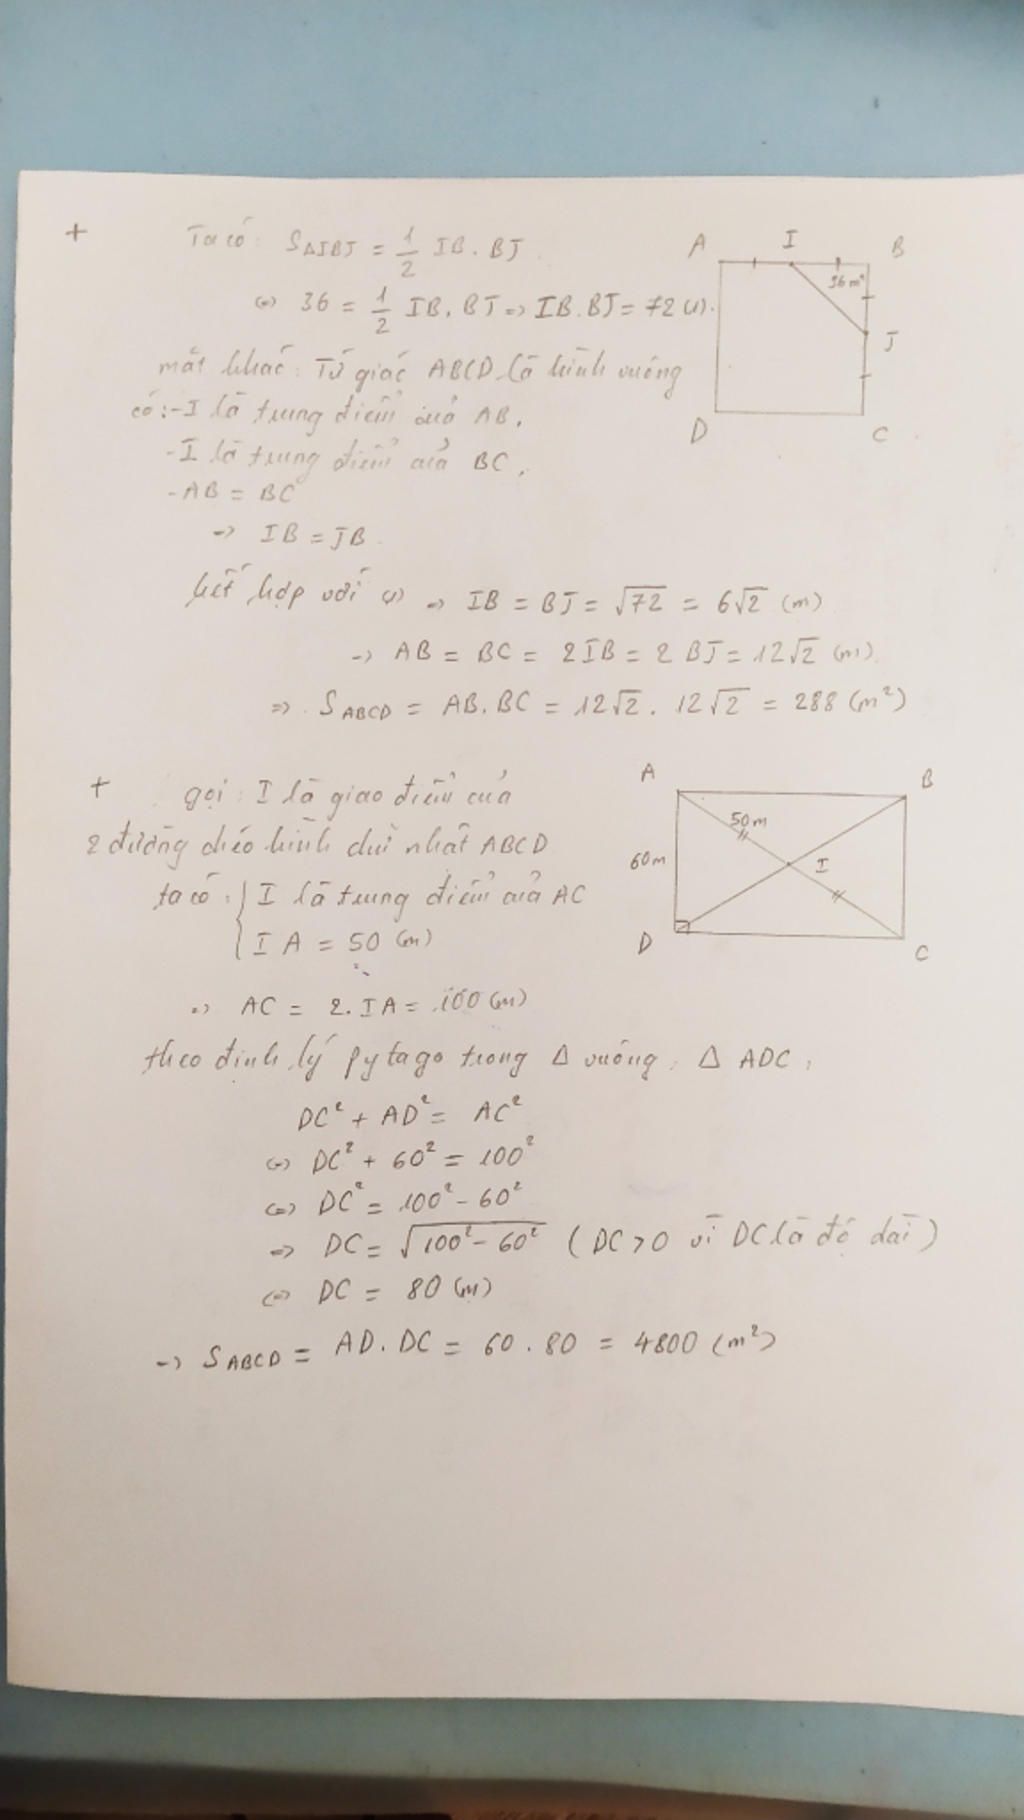 + Ta có: S△IBJ = 1/2 IB. BJ
<=> 36 = 1/2 IB. BJ => IB. BJ = 72 (1).
mặt khác: Tứ giác ABCD là hình vuông
có: - I là trung điểm của AB.
- I là trung điểm của BC.
- AB = BC
=> IB = JB.
kết hợp với (1) => IB = BJ = √72 = 6√2 (m)
=> AB = BC = 2IB = 2 BJ = 12√2 (m).
=> SABCD = AB. BC = 12√2 . 12√2 = 288 (m²)
A I B
36 m²
J
D C
+ gọi: I là giao điểm của
2 đường chéo hình chữ nhật ABCD
ta có: { I là trung điểm của AC
I A = 50 (m)
=> AC = 2. IA = 100 (m)
A B
50m
60m I
D C
theo định lý pytago trong △ vuông, △ ADC,
DC² + AD² = AC²
<=> DC² + 60² = 100²
<=> DC² = 100² - 60²
=> DC = √100² - 60² (DC > 0 vì DC là độ dài)
<=> DC = 80 (m)
=> SABCD = AD. DC = 60 . 80 = 4800 (m²)